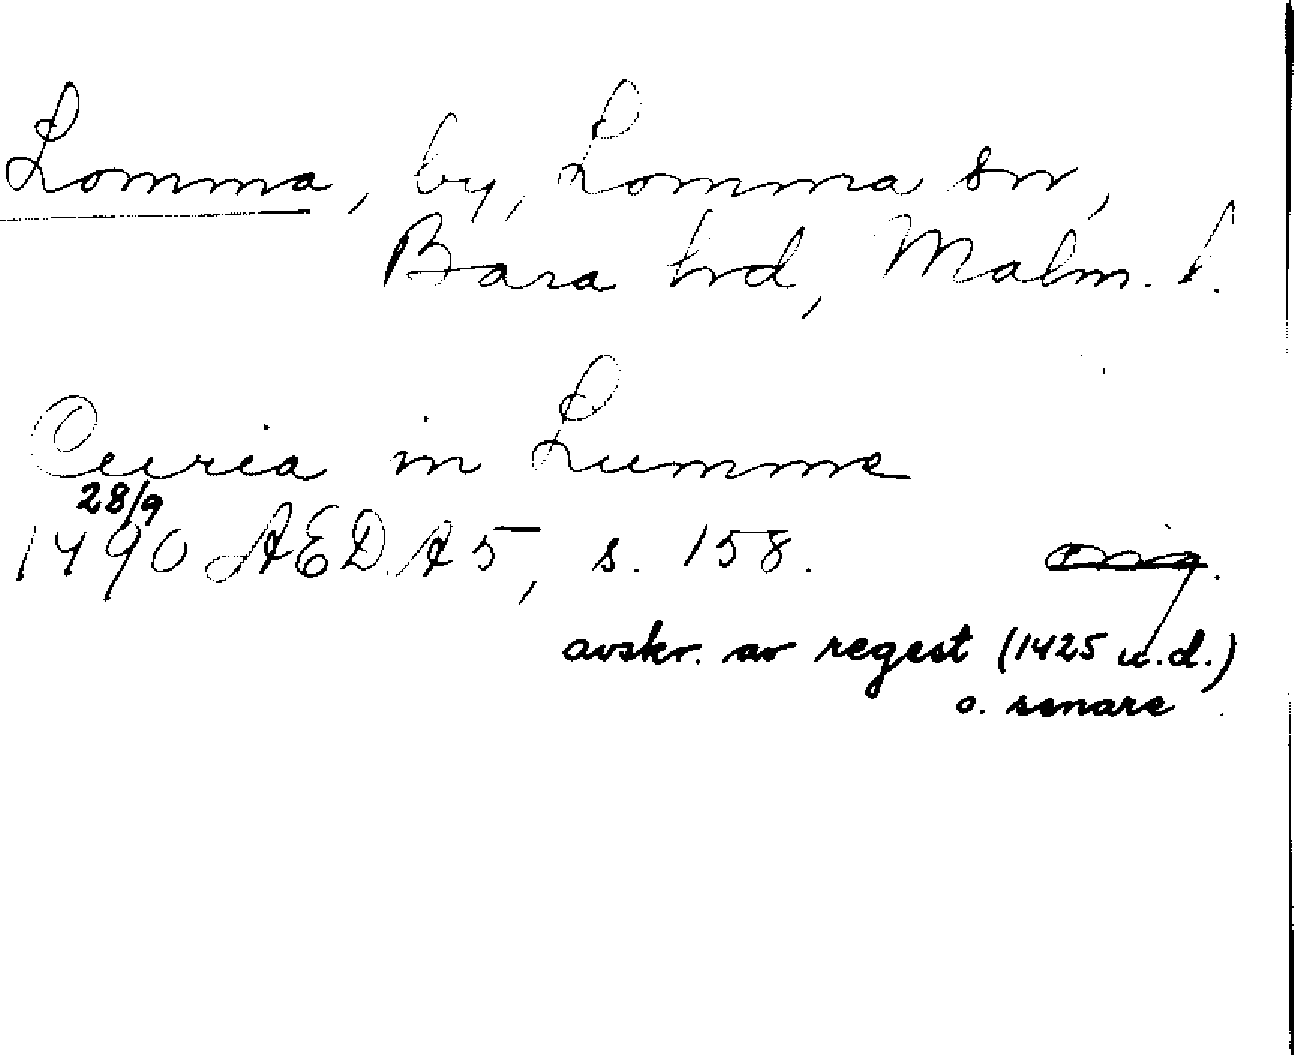 Lomma, by, Lomma sn,
Bara hd, Malm. l.
Curia in Lumme
28/9
1490 AEDA 5, s. 158. orig.
avskr. av regest (1425 u.d.)
o. senare